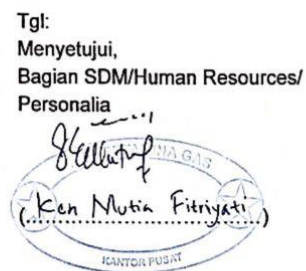 Tgl:
Menyetujui,
Bagian SDM/Human Resources/
Personalia
NA GAS
(Ken Mutia Fitriyati)
KANTOR PUSAT